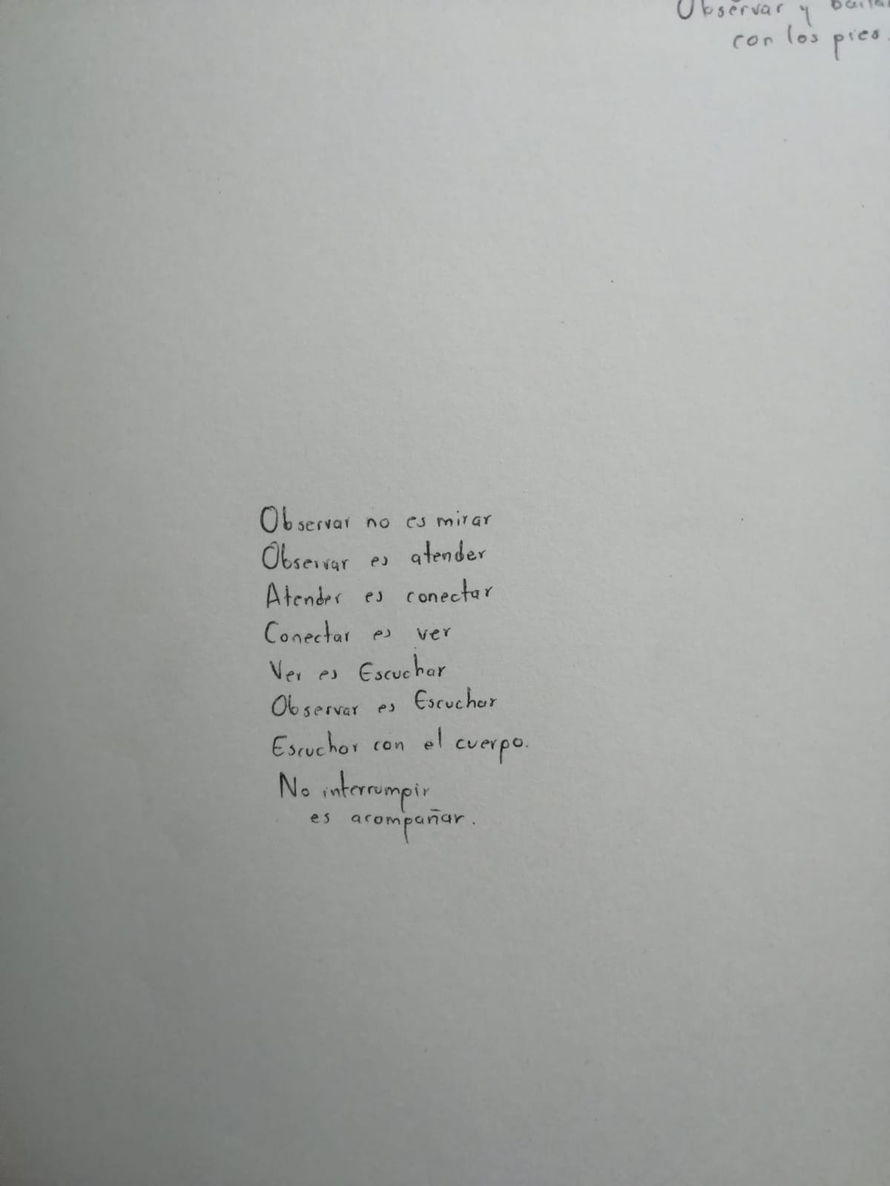 Observar y bailar
con los pies.
Observar no es mirar
Observar es atender
Atender es conectar
Conectar es ver
Ver es Escuchar
Observar es Escuchar
Escuchar con el cuerpo.
No interrumpir
es acompañar.